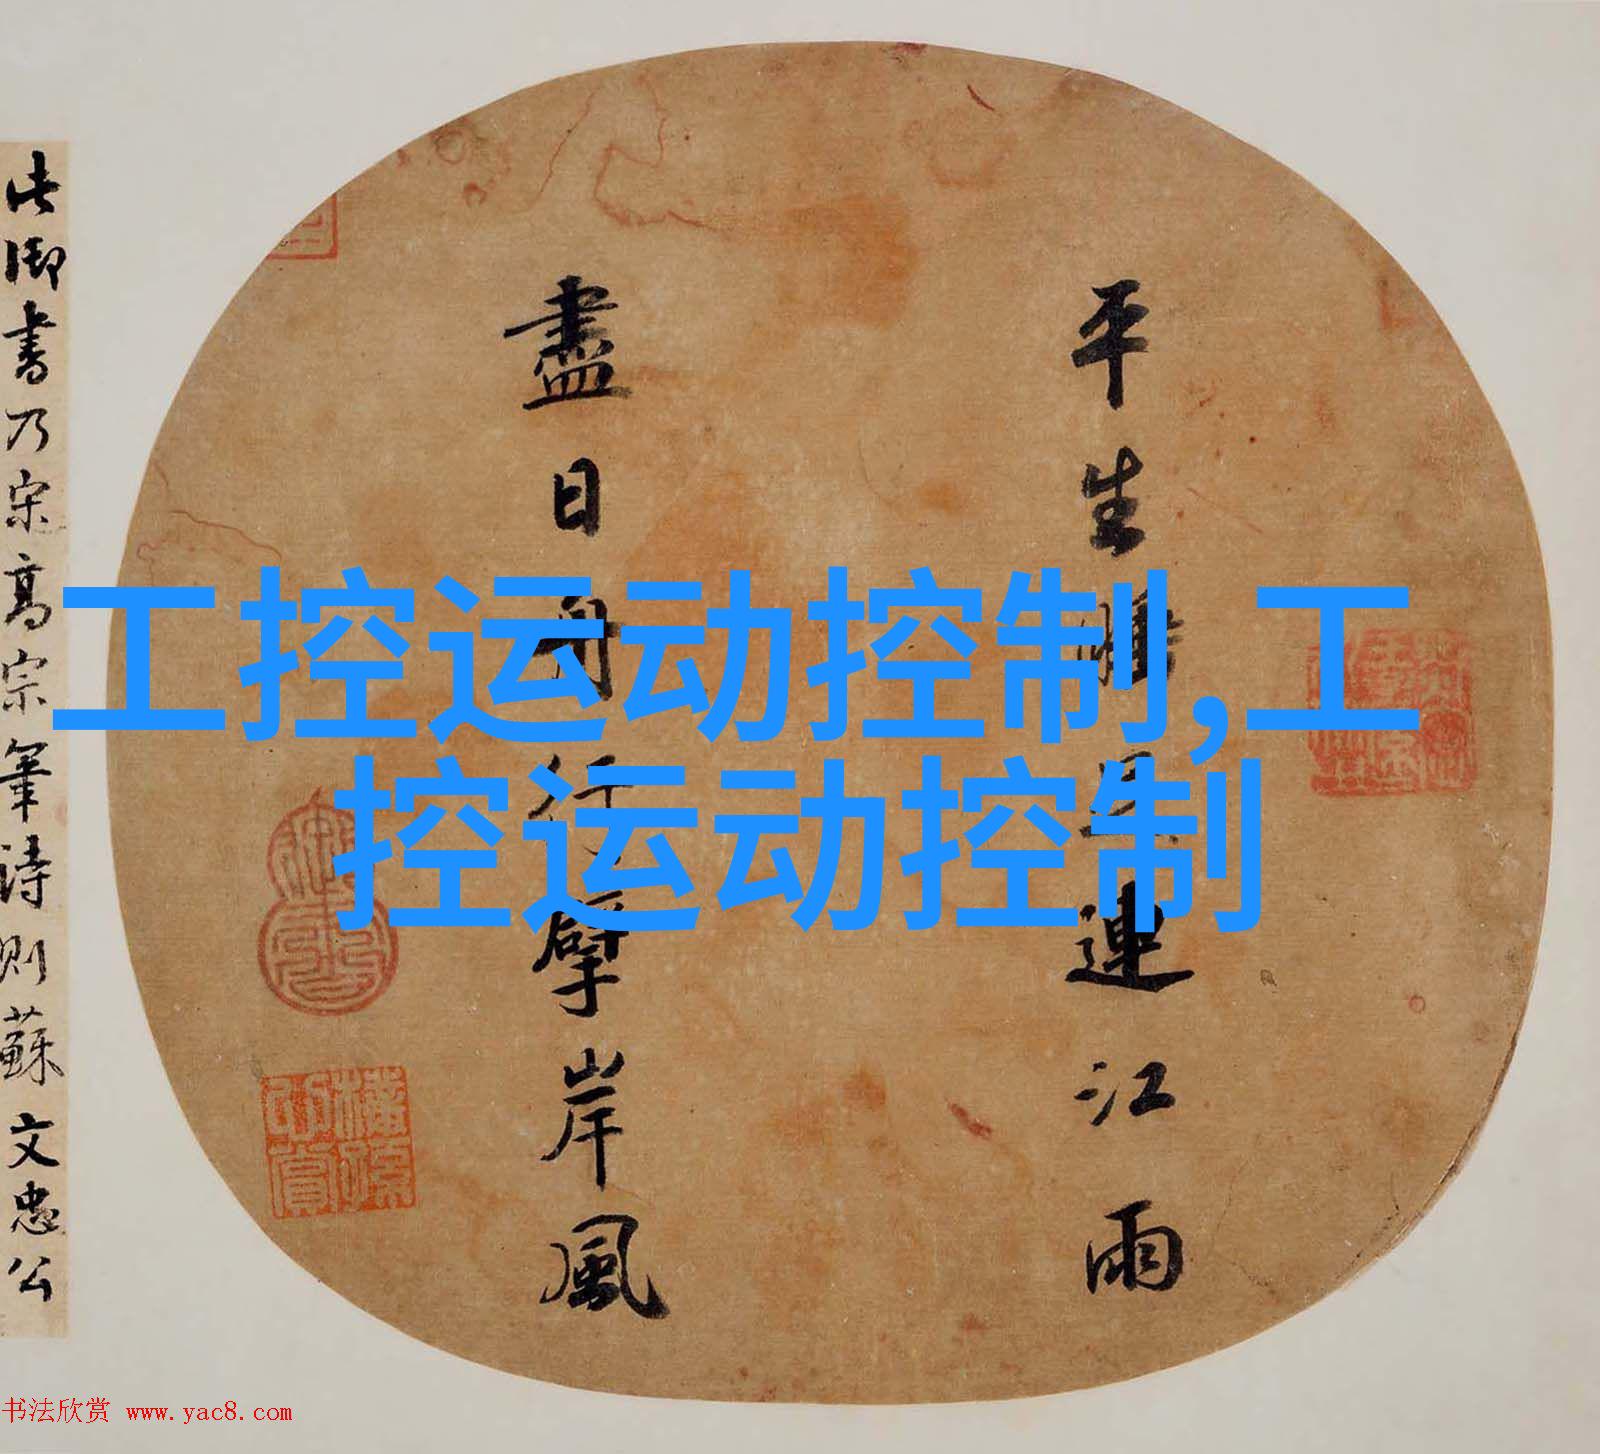 工控运动控制,工
控运动控制
平生連江雨
盡日舟行擘岸風
此御書乃宋高宗筆詩則蘇文忠公
书法欣赏 www.yac8.com